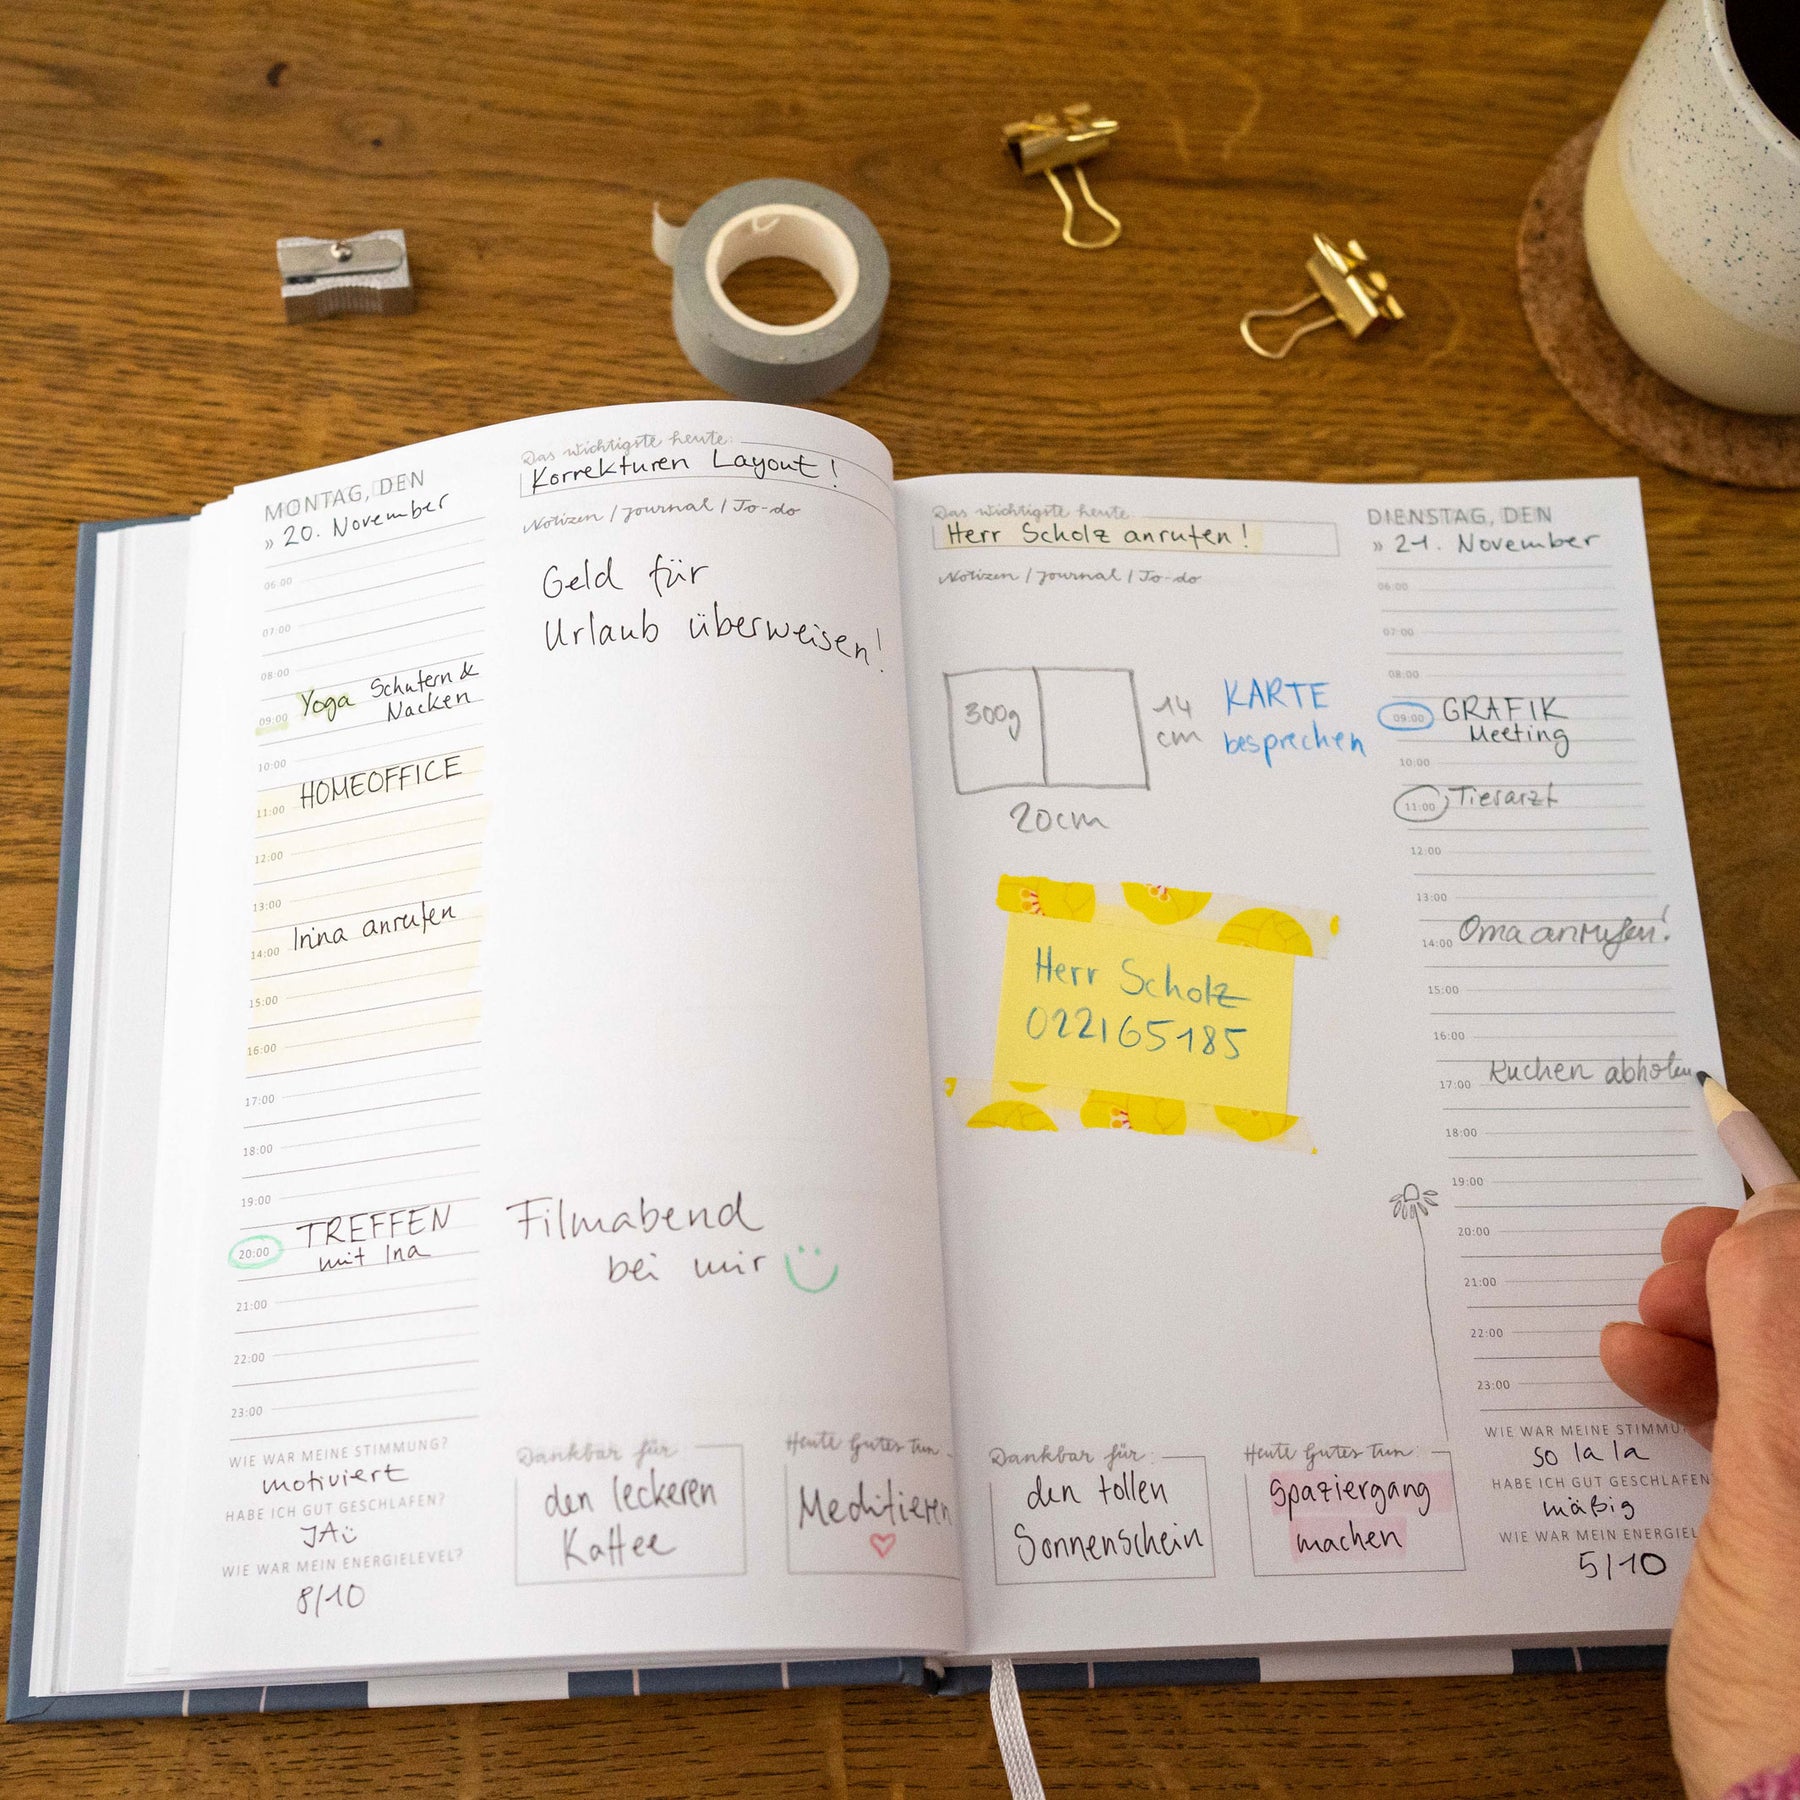 MONTAG, DEN
» 20. November
06:00
07:00
08:00
Yoga Schultern &
Nacken
09:00
10:00
HOMEOFFICE
11:00
12:00
13:00
Irina anrufen
14:00
15:00
16:00
17:00
18:00
19:00
TREFFEN
20:00 mit Ina
21:00
22:00
23:00
WIE WAR MEINE STIMMUNG?
motiviert
HABE ICH GUT GESCHLAFEN?
JA
WIE WAR MEIN ENERGIELEVEL?
8/10
Das Wichtigste heute:
Korrekturen Layout!
Notizen / Journal / To-do
Geld für
Urlaub überweisen!
Filmabend
bei mir
Dankbar für
den leckeren
Kaffee
Heute Gutes tun
Meditieren
Das Wichtigste heute
Herr Scholz anrufen!
Notizen / Journal / To-do
300g
14
cm
20cm
KARTE
besprechen
Herr Scholz
022165185
Dankbar für:
den tollen
Sonnenschein
Heute Gutes Tun:
Spaziergang
machen
DIENSTAG, DEN
» 21. November
06:00
07:00
08:00
09:00 GRAFIK
Meeting
10:00
11:00 Tierarzt
12:00
13:00
14:00 Oma anrufen!
15:00
16:00
17:00 Kuchen abholen
18:00
19:00
20:00
21:00
22:00
23:00
WIE WAR MEINE STIMMU
so la la
HABE ICH GUT GESCHLAFEN
mäßig
WIE WAR MEIN ENERGIEL
5/10